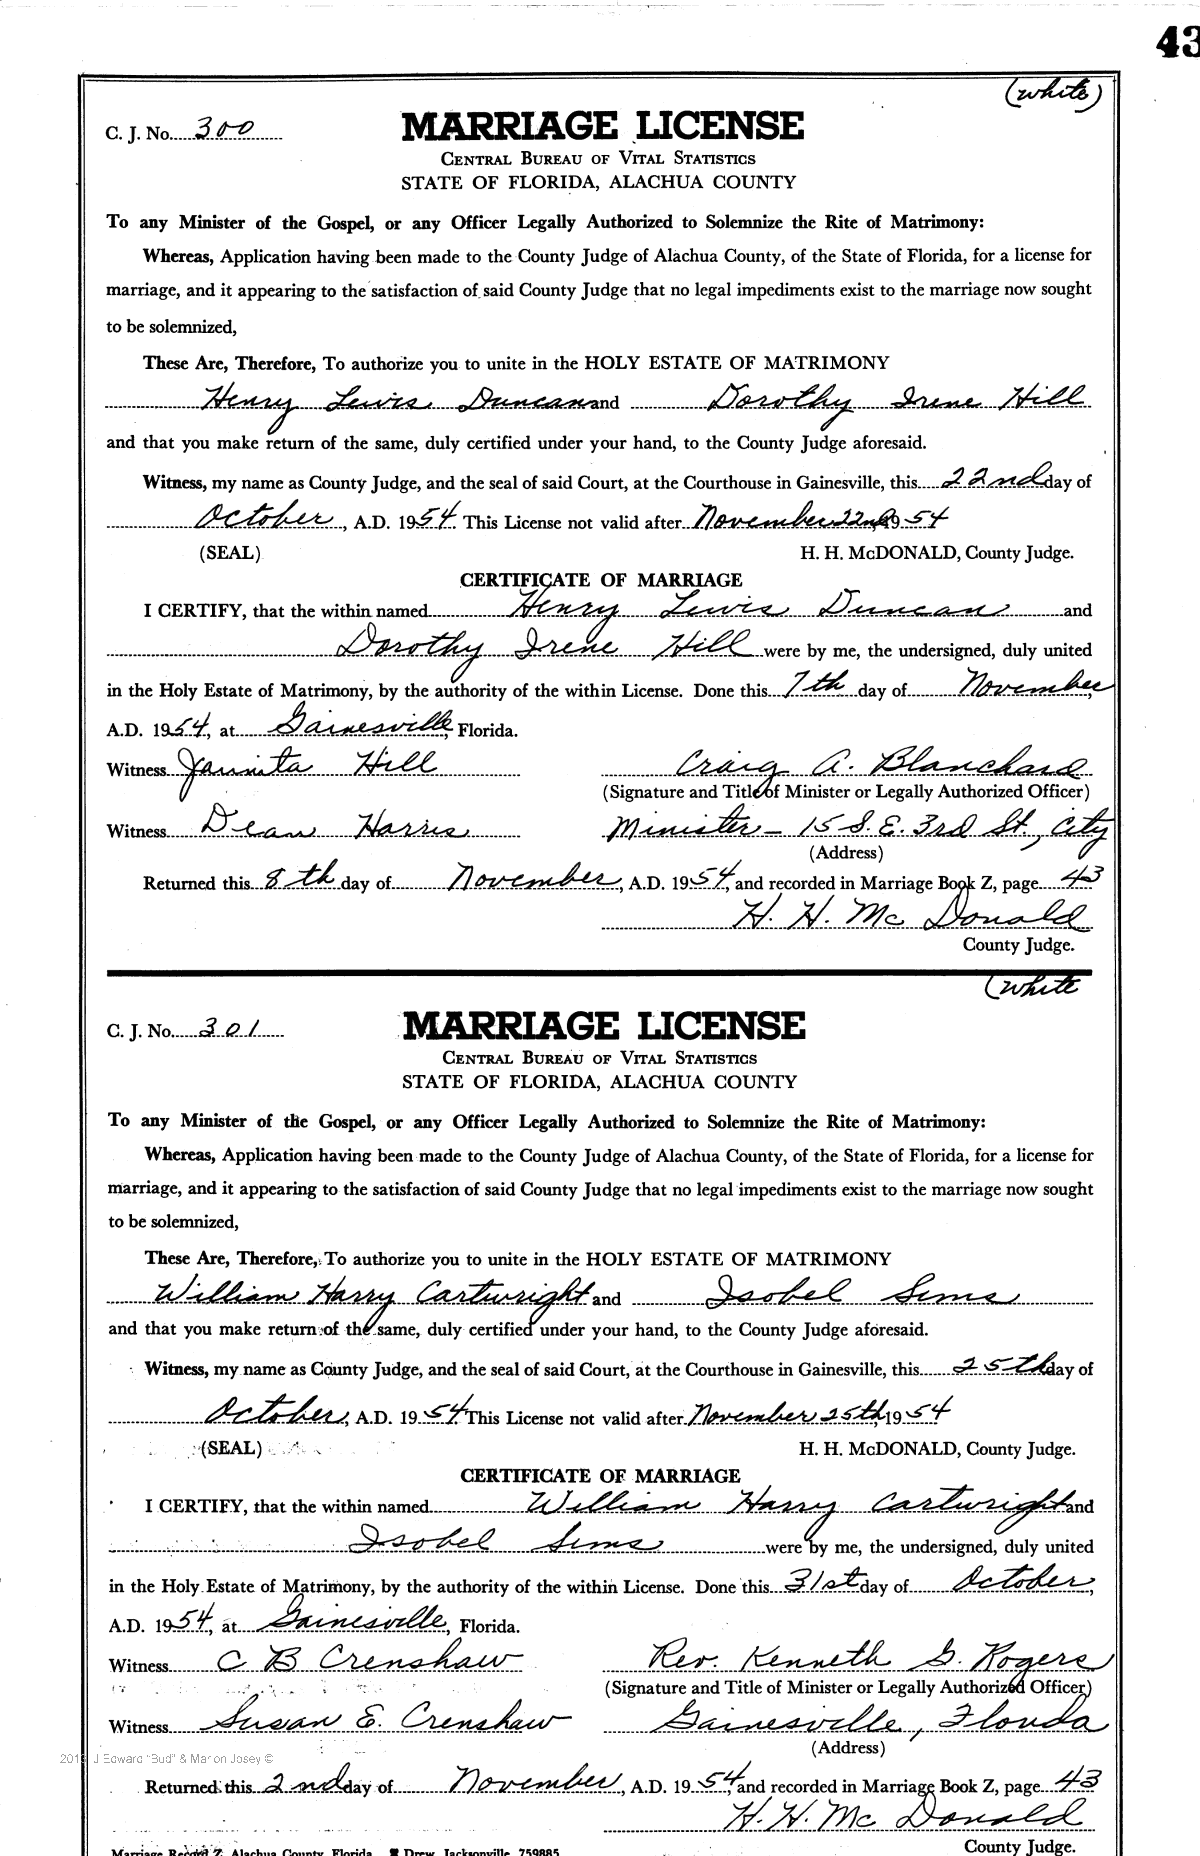 43
(white)
C. J. No. 300
MARRIAGE LICENSE
CENTRAL BUREAU OF VITAL STATISTICS
STATE OF FLORIDA, ALACHUA COUNTY
To any Minister of the Gospel, or any Officer Legally Authorized to Solemnize the Rite of Matrimony:
Whereas, Application having been made to the County Judge of Alachua County, of the State of Florida, for a license for
marriage, and it appearing to the satisfaction of said County Judge that no legal impediments exist to the marriage now sought
to be solemnized,
These Are, Therefore, To authorize you to unite in the HOLY ESTATE OF MATRIMONY
Henry Lewis Duncan and Dorothy Irene Hill
and that you make return of the same, duly certified under your hand, to the County Judge aforesaid.
Witness, my name as County Judge, and the seal of said Court, at the Courthouse in Gainesville, this 22nd day of
October, A.D. 1954. This License not valid after November 22nd, 1954
(SEAL) H. H. McDONALD, County Judge.
CERTIFICATE OF MARRIAGE
I CERTIFY, that the within named Henry Lewis Duncan and
Dorothy Irene Hill were by me, the undersigned, duly united
in the Holy Estate of Matrimony, by the authority of the within License. Done this 7th day of November,
A.D. 1954, at Gainesville, Florida.
Witness Jaunita Hill Craig A. Blanchard
(Signature and Title of Minister or Legally Authorized Officer)
Witness Dean Harris Minister - 15 S. E. 3rd St., City
(Address)
Returned this 8th day of November, A.D. 1954, and recorded in Marriage Book Z, page 43
H. H. McDonald
County Judge.
(white
C. J. No. 301
MARRIAGE LICENSE
CENTRAL BUREAU OF VITAL STATISTICS
STATE OF FLORIDA, ALACHUA COUNTY
To any Minister of the Gospel, or any Officer Legally Authorized to Solemnize the Rite of Matrimony:
Whereas, Application having been made to the County Judge of Alachua County, of the State of Florida, for a license for
marriage, and it appearing to the satisfaction of said County Judge that no legal impediments exist to the marriage now sought
to be solemnized,
These Are, Therefore, To authorize you to unite in the HOLY ESTATE OF MATRIMONY
William Harry Cartwright and Isobel Sims
and that you make return of the same, duly certified under your hand, to the County Judge aforesaid.
Witness, my name as County Judge, and the seal of said Court, at the Courthouse in Gainesville, this 25th day of
October, A.D. 1954 This License not valid after November 25th, 1954
(SEAL) H. H. McDONALD, County Judge.
CERTIFICATE OF MARRIAGE
I CERTIFY, that the within named William Harry Cartwright and
Isobel Sims were by me, the undersigned, duly united
in the Holy Estate of Matrimony, by the authority of the within License. Done this 31st day of October,
A.D. 1954, at Gainesville, Florida.
Witness C B Crenshaw Rev. Kenneth G. Rogers
(Signature and Title of Minister or Legally Authorized Officer)
Witness Susan E. Crenshaw Gainesville, Florida
(Address)
J Edward "Bud" & Marion Josey ©
Returned this 2nd day of November, A.D. 1954, and recorded in Marriage Book Z, page 43
H. H. McDonald
County Judge.
Marriage Record Z, Alachua County, Florida Drew, Jacksonville 759885